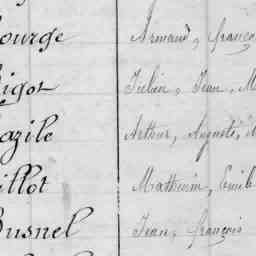 ourge Armand, françois
igot Julien, Jean, M
azile Arthur, Auguste,
illot Mathurin, Emile
usnel Jean, françois